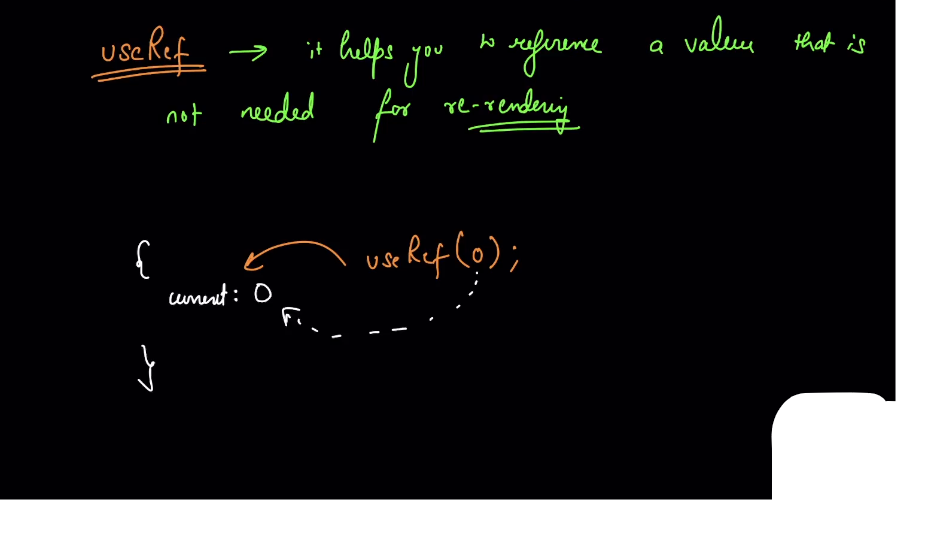 useRef → it helps you to reference a value that is
not needed for re-rendering
{ useRef(0);
current: 0
}